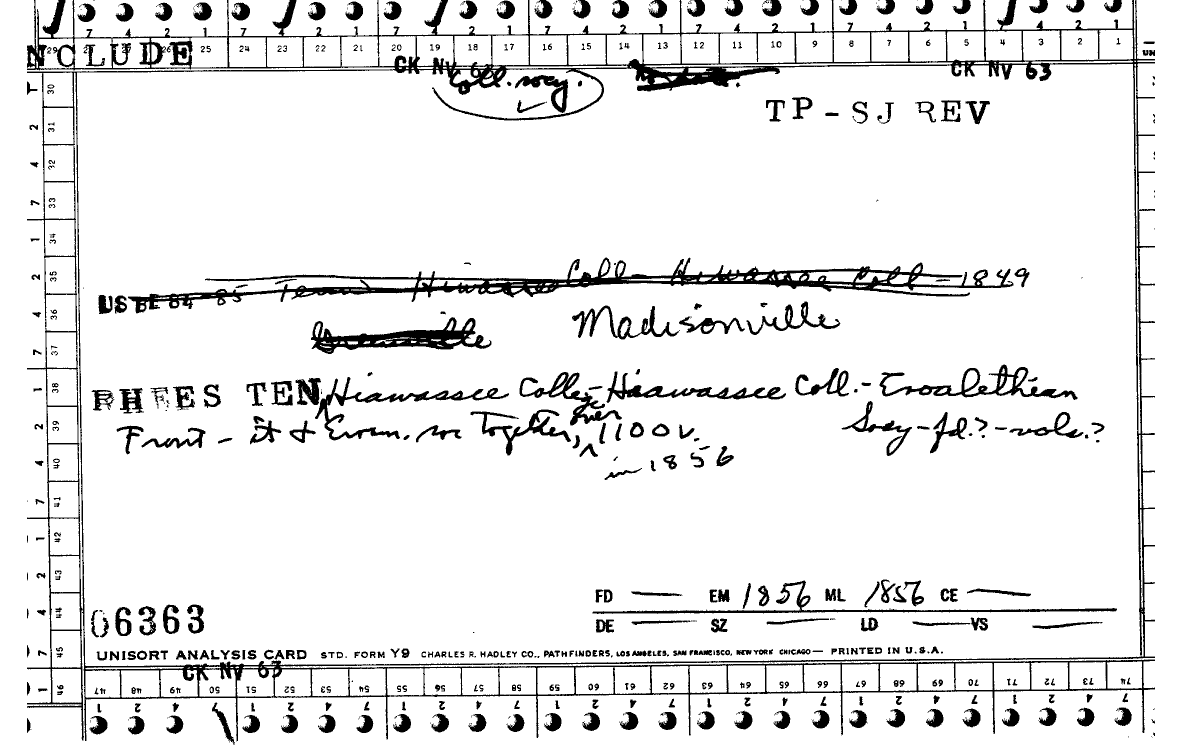 7 4 2 1 7 4 2 1 7 4 2 1 7 4 2 1 7 4 2 1 7 4 2 1 7 4 2 1
29 28 27 26 25 24 23 22 21 20 19 18 17 16 15 14 13 12 11 10 9 8 7 6 5 4 3 2 1
NCLUDE
CK NV 63 CK NV 63
Coll. socy.
TP-SJ REV
US BE 84-85 Tenn Hiwassee Coll - Hiwassee Coll - 1849
Greenville Madisonville
RHEES TEN Hiawassee College - Hiawassee Coll. - Eroalethian
Front - it & Erom. soc together, over 1100 v. Socy - fd.? - vols.?
in 1856
FD — EM 1856 ML 1856 CE —
06363
DE — SZ — LD — VS —
UNISORT ANALYSIS CARD STD. FORM Y9 CHARLES R. HADLEY CO., PATHFINDERS, LOS ANGELES, SAN FRANCISCO, NEW YORK CHICAGO— PRINTED IN U.S.A.
CK NV 63
47 48 49 50 51 52 53 54 55 56 57 58 59 60 61 62 63 64 65 66 67 68 69 70 71 72 73 74
1 2 4 7 1 2 4 7 1 2 4 7 1 2 4 7 1 2 4 7 1 2 4 7 1 2 4 7